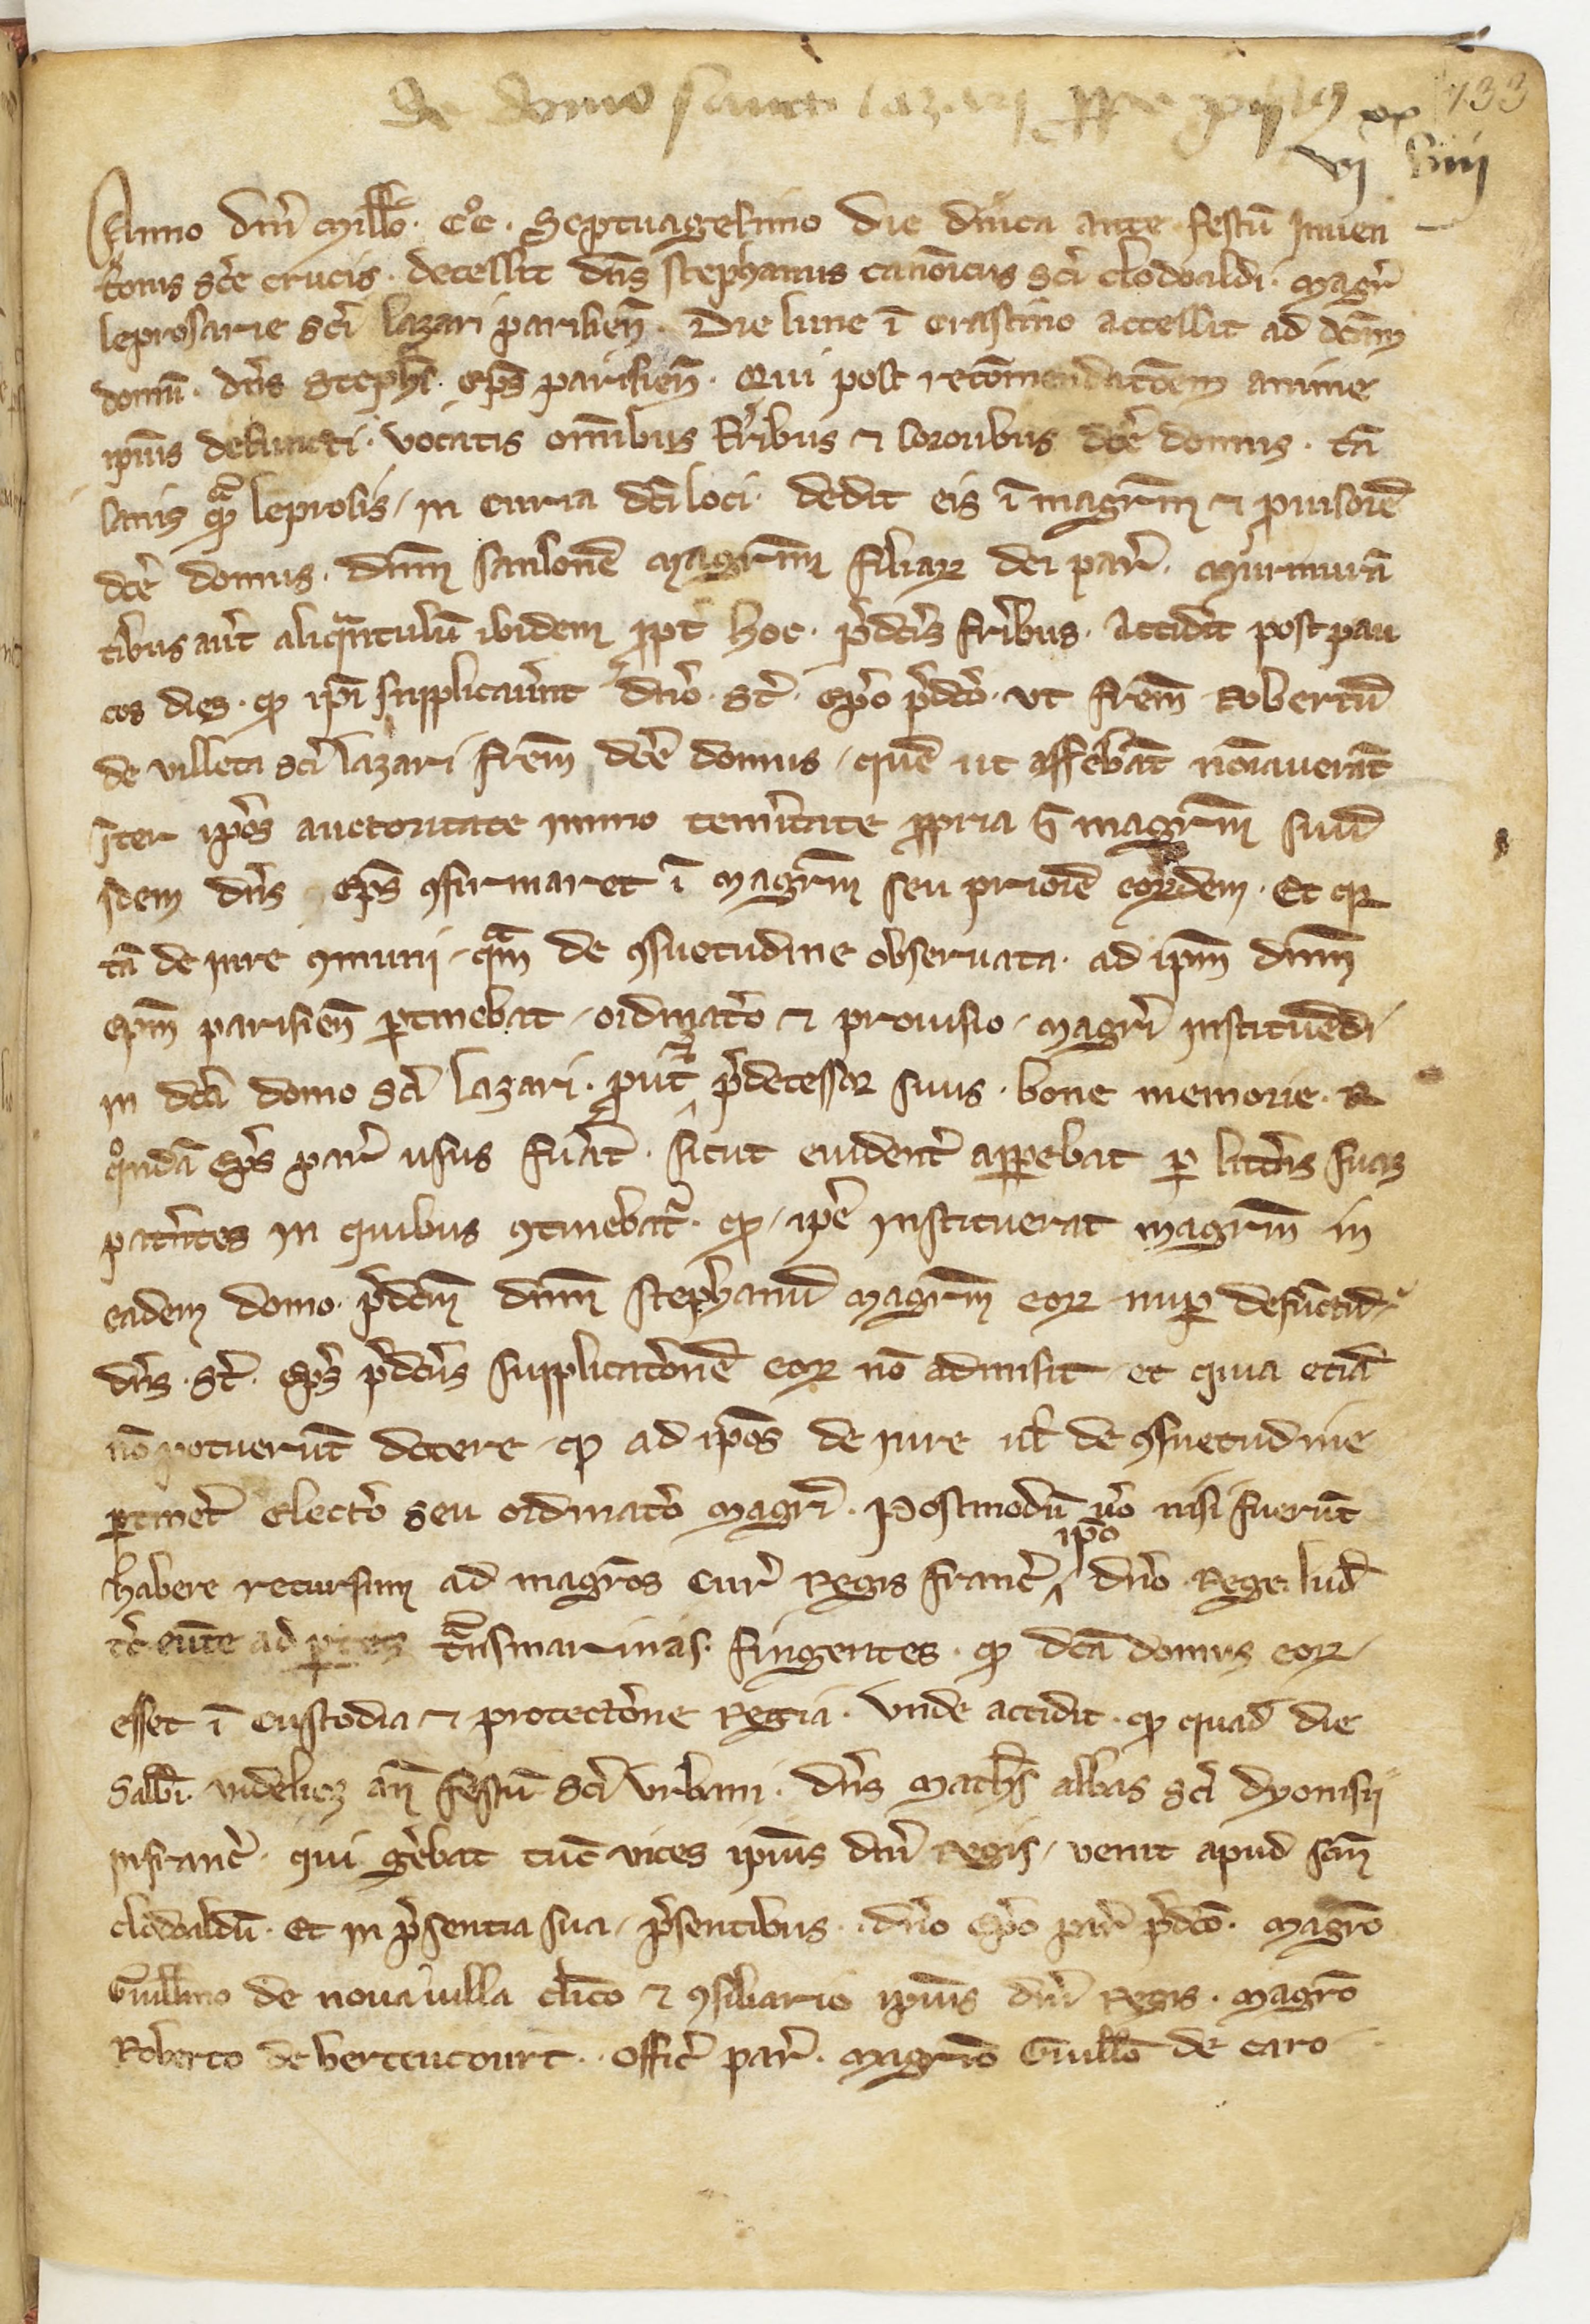 De domo sancti lazari prope parisius
133
xx
vi viiij
Anno dnī Millō. CͦC. Septuagesimo die dn̄ica ante festū Inuen
tionis sc̄e crucis. decessit dn̄s stephanus canōicus sc̄i clodoaldi. magr̄
leprosarie sc̄i lazari parisien̄. Die lune ī crastino accessit ad dc̄am
domū. dn̄s steph̄s. ep̄s parisien̄. Qui post recōmendatōem anime
ipīus defuncti. vocatis om̄ibus fr̄ibus ⁊ sororibus dc̄e domus. tā
sanis qᵃm leprosis, in curia dc̄i loci. dedit eis ī magr̄m ⁊ ꝓuisorē
dc̄e domus. dn̄m sansonē magr̄m filiaꝝ dei par̄. Murmurā
tibus aut̄ aliqᵃntulū ibidem ꝓpt̄ hoc. p̄dc̄is fr̄ibus. accidit post pau
cos dies. ꝙ ip̄i supplicauer̄nt dn̄o. St̄. ep̄o p̄dc̄o. vt fr̄em Robertū
de villeta sc̄i lazari fr̄em dc̄e domus, quē ut asse̅rebāt nōiauerāt
īter ip̄os auctoritate immo tem̄itate ꝓpria ī magr̄m suū
idem dn̄s ep̄s ꝯfirmaret ī magr̄m seu priorē eoꝝdem. Et ꝙ
tā de iure ꝯmuni, qᵃm de ꝯsuetudine obseruata. ad ip̄m dn̄m
ep̄m parisien̄ ꝑtinebat, ordinatō ⁊ prouisio, magr̄i instituēdi
in dc̄a domo sc̄i lazari. put̄ p̄decessor suus. bone memorie. R
qͦndā ep̄s par̄ usus fuer̄at. sicut euident̄ appebat ꝑ litt̄as suas
patn̄tes in quibus ꝯtinebat̄. ꝙ, ip̄e instituerat magr̄m in
eadem domo. p̄dc̄m dn̄m stephanū magr̄m eoꝝ nuꝑ defūctū,
dn̄s. St̄. ep̄s p̄dc̄us supplicatōnē eoꝝ nō admisit, et quia etiā
nō potuerūt docere, ꝙ ad ip̄os de iure ul̄ de ꝯsuetudine
ꝑtinet̄ electō seu ordinatō magr̄i. Postmodū ūo nisi fuerūt
habere recursum ad magr̄os cur̄ Regis franc̄, ip̄o dn̄o Rege. lud̄
tc̄ eūte ad ꝑtes tᵃnsmarinas. fingentes. ꝙ dc̄a domus eoꝝ,
esset ī custodia ⁊ protectōne Regia. Vnde accidit. ꝙ quad̄ die
Sabb̄i. uidelicꝫ an̄ festū sc̄i Vrbani. dn̄s Math̄s abbas sc̄i dyonisii
in franc̄. qui ger̄bat tūc vices ipīus dn̄i Regis, venit apud sc̄m
clodoaldū. Et in p̄sentia sua, p̄sentibus. dn̄o ep̄o par̄ p̄dc̄o. magr̄o
Guill̄mo de noua uilla cl̄ico ⁊ ꝯsiliario ipīus dn̄i Regis. magr̄o
Roberto de bertencourt. offic̄ par̄. magr̄o Guill̄o de caro